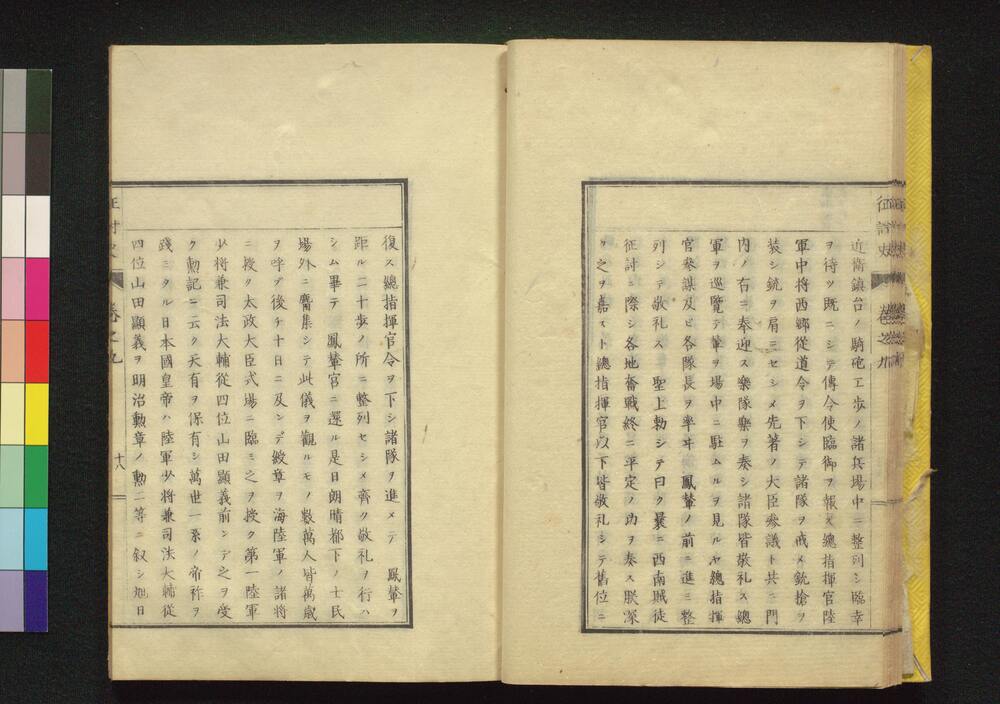 近衞鎮台ノ騎砲工歩ノ諸兵場中ニ整列シ臨幸
ヲ待ツ既ニシテ傳令使臨御ヲ報ス總指揮官陸
軍中将西郷従道令ヲ下シテ諸隊ヲ戒メ銃槍ヲ
装シ銃ヲ肩ニセシメ先著ノ大臣參議ト共ニ門
内ノ右ニ奉迎ス樂隊樂ヲ奏シ諸隊皆敬礼ス總
軍ヲ巡覧テ輦ヲ場中ニ駐ムルヲ見ルヤ總指揮
官參謀及ビ各隊長ヲ率ヰ 鳳輦ノ前ニ進ミ整
列シテ敬礼ス 聖上勅シテ曰ク曩ニ西南賊徒
征討ニ際シ各地奮戰終ニ平定ノ功ヲ奏ス朕深
ク之ヲ嘉スト總指揮官以下皆敬礼シテ舊位ニ
征討史 卷之九
復ス總指揮官令ヲ下シ諸隊ヲ進メテ 鳳輦ヲ
距ル二十歩ノ所ニ整列セシメ齊ク敬礼ヲ行ハ
シム畢テ 鳳輦宮ニ還ル是日朗晴都下ノ士民
場外ニ麕集シテ此儀ヲ觀ルモノ數萬人皆萬歳
ヲ呼ブ後チ十日ニ及ンデ綬章ヲ海陸軍ノ諸将
ニ授ク太政大臣式場ニ臨ミ之ヲ授ク第一陸軍
少将兼司法大輔從四位山田顯義前ンデ之ヲ受
ク勲記ニ云ク天有ヲ保有シ萬世一系ノ帝祚ヲ
踐ミタル日本國皇帝ハ陸軍少将兼司法大輔從
四位山田顯義ヲ明治勲章ノ勲二等ニ叙シ旭日
征討史 卷之九 十八